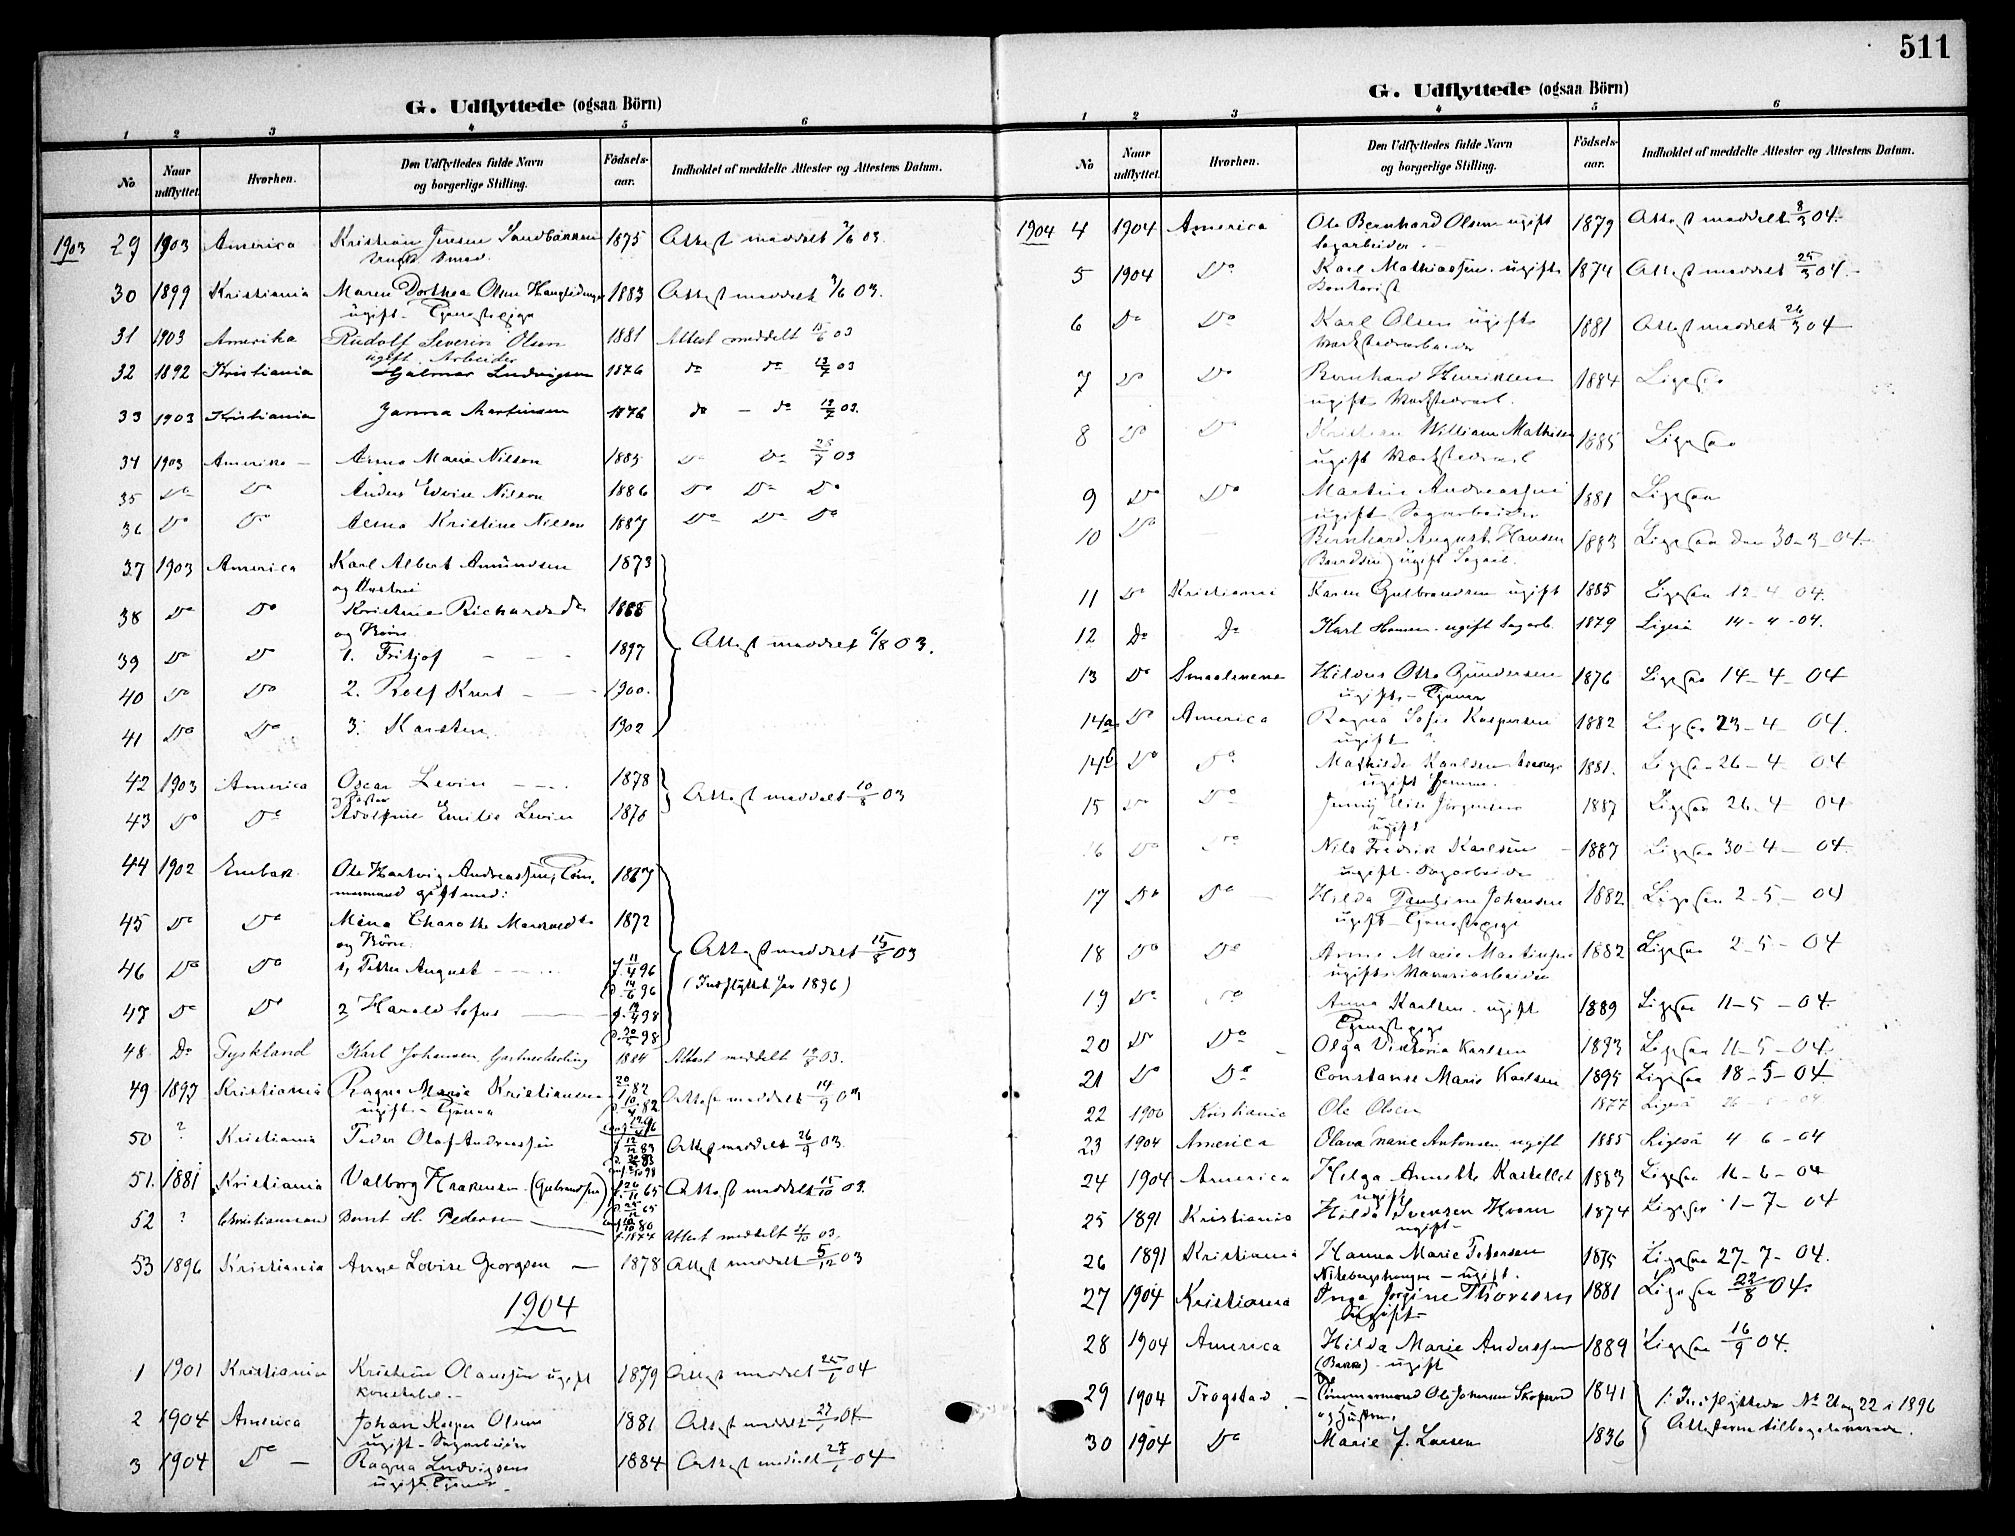 511
G. Udflyttede (ogsaa Börn)
1 2 3 4 5 6
No Naar udflyttet. Hvorhen. Den Udflyttedes fulde Navn og borgerlige Stilling. Födsels-aar. Indholdet af meddelte Attester og Attestens Datum.
1903 29 1903 America Kristian Jensen Sandbakken 1875 Attest meddelt 7/6 03.
Smed.
30 1899 Kristiania Maren Dorthea Olsen 1883 Attest meddelt 9/6 03.
ugift - Tjenestepige
31 1903 Amerika Rudolf Severin Olsen 1881 Attest meddelt 15/6 03
ugift. Arbeider
32 1892 Kristiania Hjalmar Ludvigsen 1876 do do 13/7 03
33 1903 Kristiania Janna Martinsen 1876 do - do 13/7 03.
34 1903 Amerika - Anna Marie Nilsen 1885 Do Do 25/7 03
35 Do Do Anders Edvin Nilson 1886 Do Do Do
36 Do Do Alma Kristine Nilson 1887 Do Do Do
37 1903 America Karl Albert Amundsen 1873
og Hustru
38 Do Do Kristine Richardsdt 1868
og Börn
39 Do Do 1. Fritjof - - - 1897 Attest meddelt 6/8 03.
40 Do Do 2. Rolf Knut - - 1900.
41 Do Do 3. Karsten 1902
42 1903 America Oscar Levin - - - 1878 Attest meddelt 10/8 03
og Söster
43 Do Do Adolfine Emilie Levin 1876
44 1902 Enebak Ole Hartvig Andreassen, Töm- 1867
mermand gift med:
45 Do Do Mina Charothe 1872
og Börn: Attest meddelt 15/8 03
46 Do Do 1, Petter August - - - f. 11/4 96
d. 14/6 96 (Indflyttet her 1896)
47 Do Do 2 Harald Sofus - f. 12/4 98
d. 30/5 98
48 Do Tyskland Karl Johansen, Gartnerlærling 1884 Attest meddelt 19/8 03.
49 1897 Kristiania Ragna Marie Kristiansen f. 20/1 82 Attest meddelt 14/9 03
ugift - Tjener d. 10/4 82
50 ? Kristiania Peder Olaf Andreassen f. 12/12 83 Attest meddelt 26/9 03.
51. 1881 Kristiania Valborg Haakensen (Gulbrandsen) f. 26/11 65 Attest meddelt 15/10 03.
d. 25/12 65
52 ? Christiansand Bernt H. Pedersen f. 1874 Attest meddelt 21/10 03.
53 1896 Kristiania Anne Lovise Georgsen - 1878 Attest meddelt 5/12 03
1904
1 1901 Kristiania Kristian Olaussen ugift 1879 Attest meddelt 25/1 04
Konstabel.
2 1904 America Johan Kasper Olsen 1881 Attest meddelt 27/1 04
ugift - Sagarbeider
3 1904 Do - Ragna Ludvigsen 1884 Attest meddelt 28/1 04
ugift. Tjener -
G. Udflyttede (ogsaa Börn)
1 2 3 4 5 6
No Naar udflyttet. Hvorhen. Den Udflyttedes fulde Navn og borgerlige Stilling. Födsels-aar. Indholdet af meddelte Attester og Attestens Datum.
1904 4 1904 America Ole Bernhard Olsen ugift 1879 Attest meddelt 8/3 04.
Sagarbeider -
5 1904 Do Karl Mathiassen. ugift 1874 Attest meddelt 25/3 04.
Kontorist
6 Do Do Karl Olsen ugift 1881 Attest meddelt 26/3 04
Værkstedarbeider
7 Do Do Bernhard Henriksen 1884 Ligesaa
ugift Værkstedarb.
8 Do Do Kristian William Mathisen 1885 Ligesaa
ugift Værkstedarb
9 Do Do Martin Andreassen 1881 Ligesaa
ugift Sagarbeider
10 Do Bernhard August Hansen 1883 Ligesaa den 30-3-04.
ugift Sagarb.
11 Do Kristiania Karen Gulbrandsen ugift 1885 Ligesaa 12-4-04.
12 Do Do Karl Hansen. ugift Sagarb. 1879 Ligesaa 14-4-04.
13 Do Smaalenene Hildus Otto Gundersen 1876 Ligesaa 14-4-04
ugift - Tjener
14a Do America Ragna Sofie Kaspersen 1882 Ligesaa 23-4-04.
ugift
14b Do Do Mathilde Karlsen 1881. Ligesaa 26-4-04
ugift
15 Do Do Jenny Elise Jörgensen 1887 Ligesaa 26-4-04
ugift
16 Do Do Nils Fredrik Karlsen 1887 Ligesaa 30-4-04.
ugift. Sagarbeider
17 Do Do - Hilda Pauline Johansen 1882 Ligesaa 2-5-04
ugift - Tjenestepige
18 Do Do Anne Marie Martinsen 1882 Ligesaa 2-5-04
ugift
19 Do Do Anna Karlsen. ugift 1889 Ligesaa 11-5-04.
Tjenestepige
20 Do Do Olga Viktoria Karlsen 1893 Ligesaa 11-5-04.
21 Do Do Constanse Marie Karlsen 1895 Ligesaa 18-5-04
22 1900 Kristiania Ole Olsen 1877 Ligesaa
23 1904 America Olava Marie Antonsen ugift 1885 Ligesaa 4-6-04
24 1904 America Helga Annette Kastellet 1883 Ligesaa 16-6-04
ugift
25 1891 Kristiania Hilda Svensen Hvam 1874 Ligesaa 1-7-04
ugift -
26 1891 Kristiania Hanna Marie Petersen 1875 Ligesaa 27-7-04.
- ugift.
27 1904 Kristiania Inga Jorgine Thorsen 1881 Ligesaa 22/8 04.
ugift -
28 1904 America Hilda Marie Anderssen 1889 Ligesaa 16/9 04.
(Bakke) - ugift
29 1904 Trogstad - Tömmermand Ole Johansen 1841 Indflyttede No 21 og 22 i 1896
og Hustru,
30 1904 Do Marie J. Larsen 1836 Attesterne tilbageleverede.